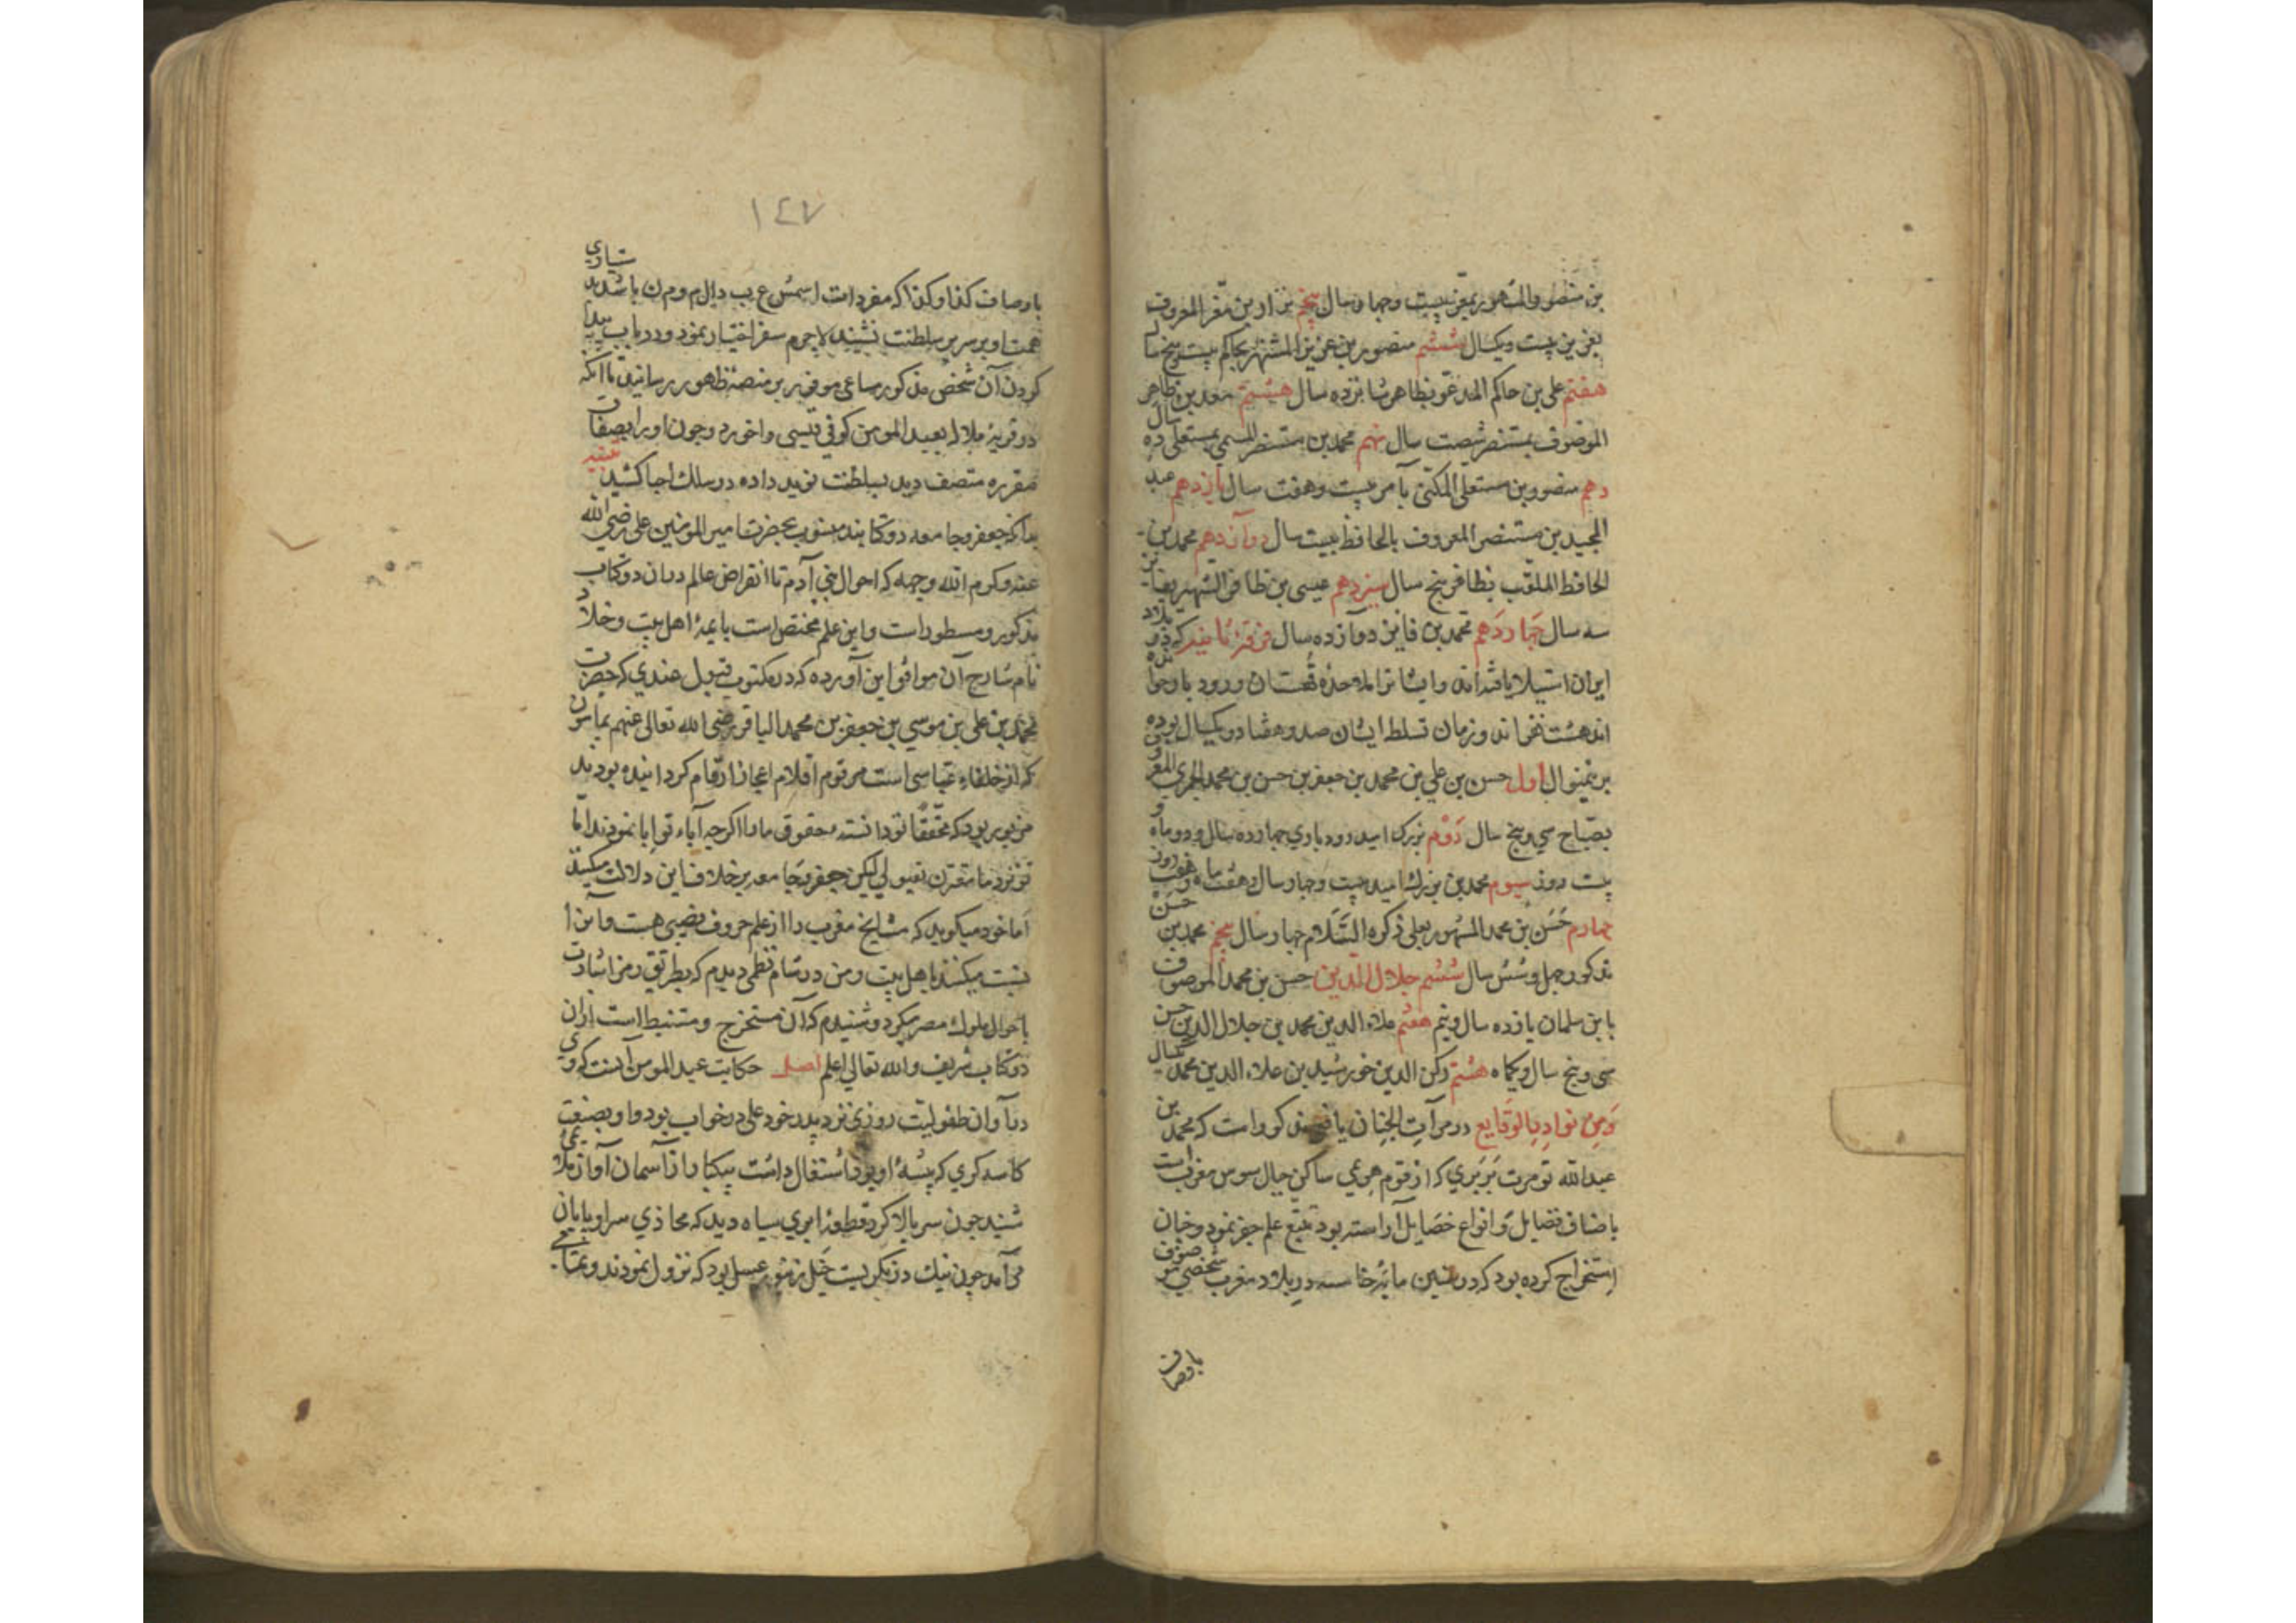 بن منصور المشهور بمعز بیست و چهار سال پنجم نزار بن معز المعروف
بعزیز بیست و یکسال ششم منصور بن عزیز المشتهر بحاکم بیست و پنج سال
هفتم علی بن حاکم المدعو بظاهر شانزده سال هشتم معد بن ظاهر
الموصوف بمستنصر شصت سال نهم محمد بن مستنصر المسمی بمستعلی ده سال
دهم منصور بن مستعلی المکنی بآمر بیست و هفت سال یازدهم عبد
المجید بن مستنصر المعروف بالحافظ بیست سال دوآزدهم محمد بن
الحافظ الملقب بظافر پنج سال سیزدهم عیسی بن ظافر الشهیر بفائز
سه سال چهاردهم محمد بن فایز دوآزده سال فرقهٔ ثانیه که در بلاد
ایران استیلا یافته‌اند و ایشانرا ملاحدهٔ قهستان و رودبار خوانده
اند هشت نفراند و زمان تسلط ایشان صد و هفتاد و یکسال بوده
برینمنوال اول حسن بن علی بن محمد بن جعفر بن حسن بن محمد الحمری المعروف
بصباح سی و پنج سال دوم بزرک امید رودباری چهارده سال و دو ماه و
بیست روز سیوم محمد بن بزرک امید بیست و چهار سال و هفت ماه و روز
چهارم حسن بن محمد المشهور بعلی ذکره السلام چهار سال پنجم محمد بن حسن
مذکور چهل و شش سال ششم جلال الدین حسن بن محمد الموصوف
بابن سلمان یازده سال و نیم هفتم علاء الدین محمد بن جلال الدین حسن
سی و پنج سال و یکماه هشتم رکن الدین خورشید بن علاء الدین محمد یکسال
ومن نوادر الوقایع در مرآت الجنان یافعی مذکور است که محمد بن
عبدالله تومرت بربری که از قوم هرعی ساکن جبال سوس مغربست
باصناف فضایل و انواع خصایل آراسته بود تتبع علم جفر نمود و چنان
استخراج کرده بود که در سنین مائهٔ خامسه در بلاد مغرب شخصی موصوف
باوصاف
١٤٧
باوصاف کذا و کذا که مفردات اسمش ع ب د ا ل م و م ن باشد بدستیاری
همت او بر سریر سلطنت نشیند لاجرم سفر اختیار نمود و در باب پیدا
کردن آن شخص مذکور مساعی موفور بر منصهٔ ظهور رسانید تا آنکه
در قریهٔ ملاله بعبد المومن کوفی قیسی واخورد و چون او را بصفات
مقرره متصف دید بسلطنت نوید داده در سلک احبا کشید تنبیه
بدانکه جعفر و جامعه دو کتابند منسوب بحضرت امیر المومنین علی رضی الله
عنه و کرم الله وجهه که احوال بنی آدم تا انقراض عالم در ان دو کتاب
مذکور و مسطور است و این علم مختص است بایمهٔ اهل بیت و خلاد
نام شارح آن موافق این آورده که در مکتوب قبول عهدی که حضرت
محمد بن علی بن موسی بن جعفر بن محمد الباقر رضی الله تعالی عنهم بمامون
که از خلفاء عباسی است مرقوم اقلام اعجاز ارقام کردانیده بودند
مزبور بود که محققا تو دانسته حقوق ما را اکرچه آباء تو ابا نمودند اما
تو نزد ما مقرن بقبولی لیکن جعفر و جامعه بر خلاف این دلالت میکند
اما خود میکوید که مشایخ مغرب را از علم حروف نصیبی هست و آنرا
نسبت میکنند باهل بیت و من در شام نظمی دیدم که بطریق رمز اشارت
باحوال ملوک مصر میکرد و شنیدم که آن مستخرج و مستنبط است ازان
دو کتاب شریف والله تعالی اعلم اصل حکایت عبد المومن آنست که وی
در آوان طفولیت روزی نزد پدر خود علی در خواب بود و او بصنعت
کاسه کری که پیشهٔ او بود اشتغال داشت بیکبار از آسمان آواز ملایمی
شنید چون سر بالا کرد قطعهٔ ابری سیاه دید که محاذی سر او پایان
می‌آمد چون نیک در نکریست خیل زنبور عسل بود که نزول نمودند و بتمامی